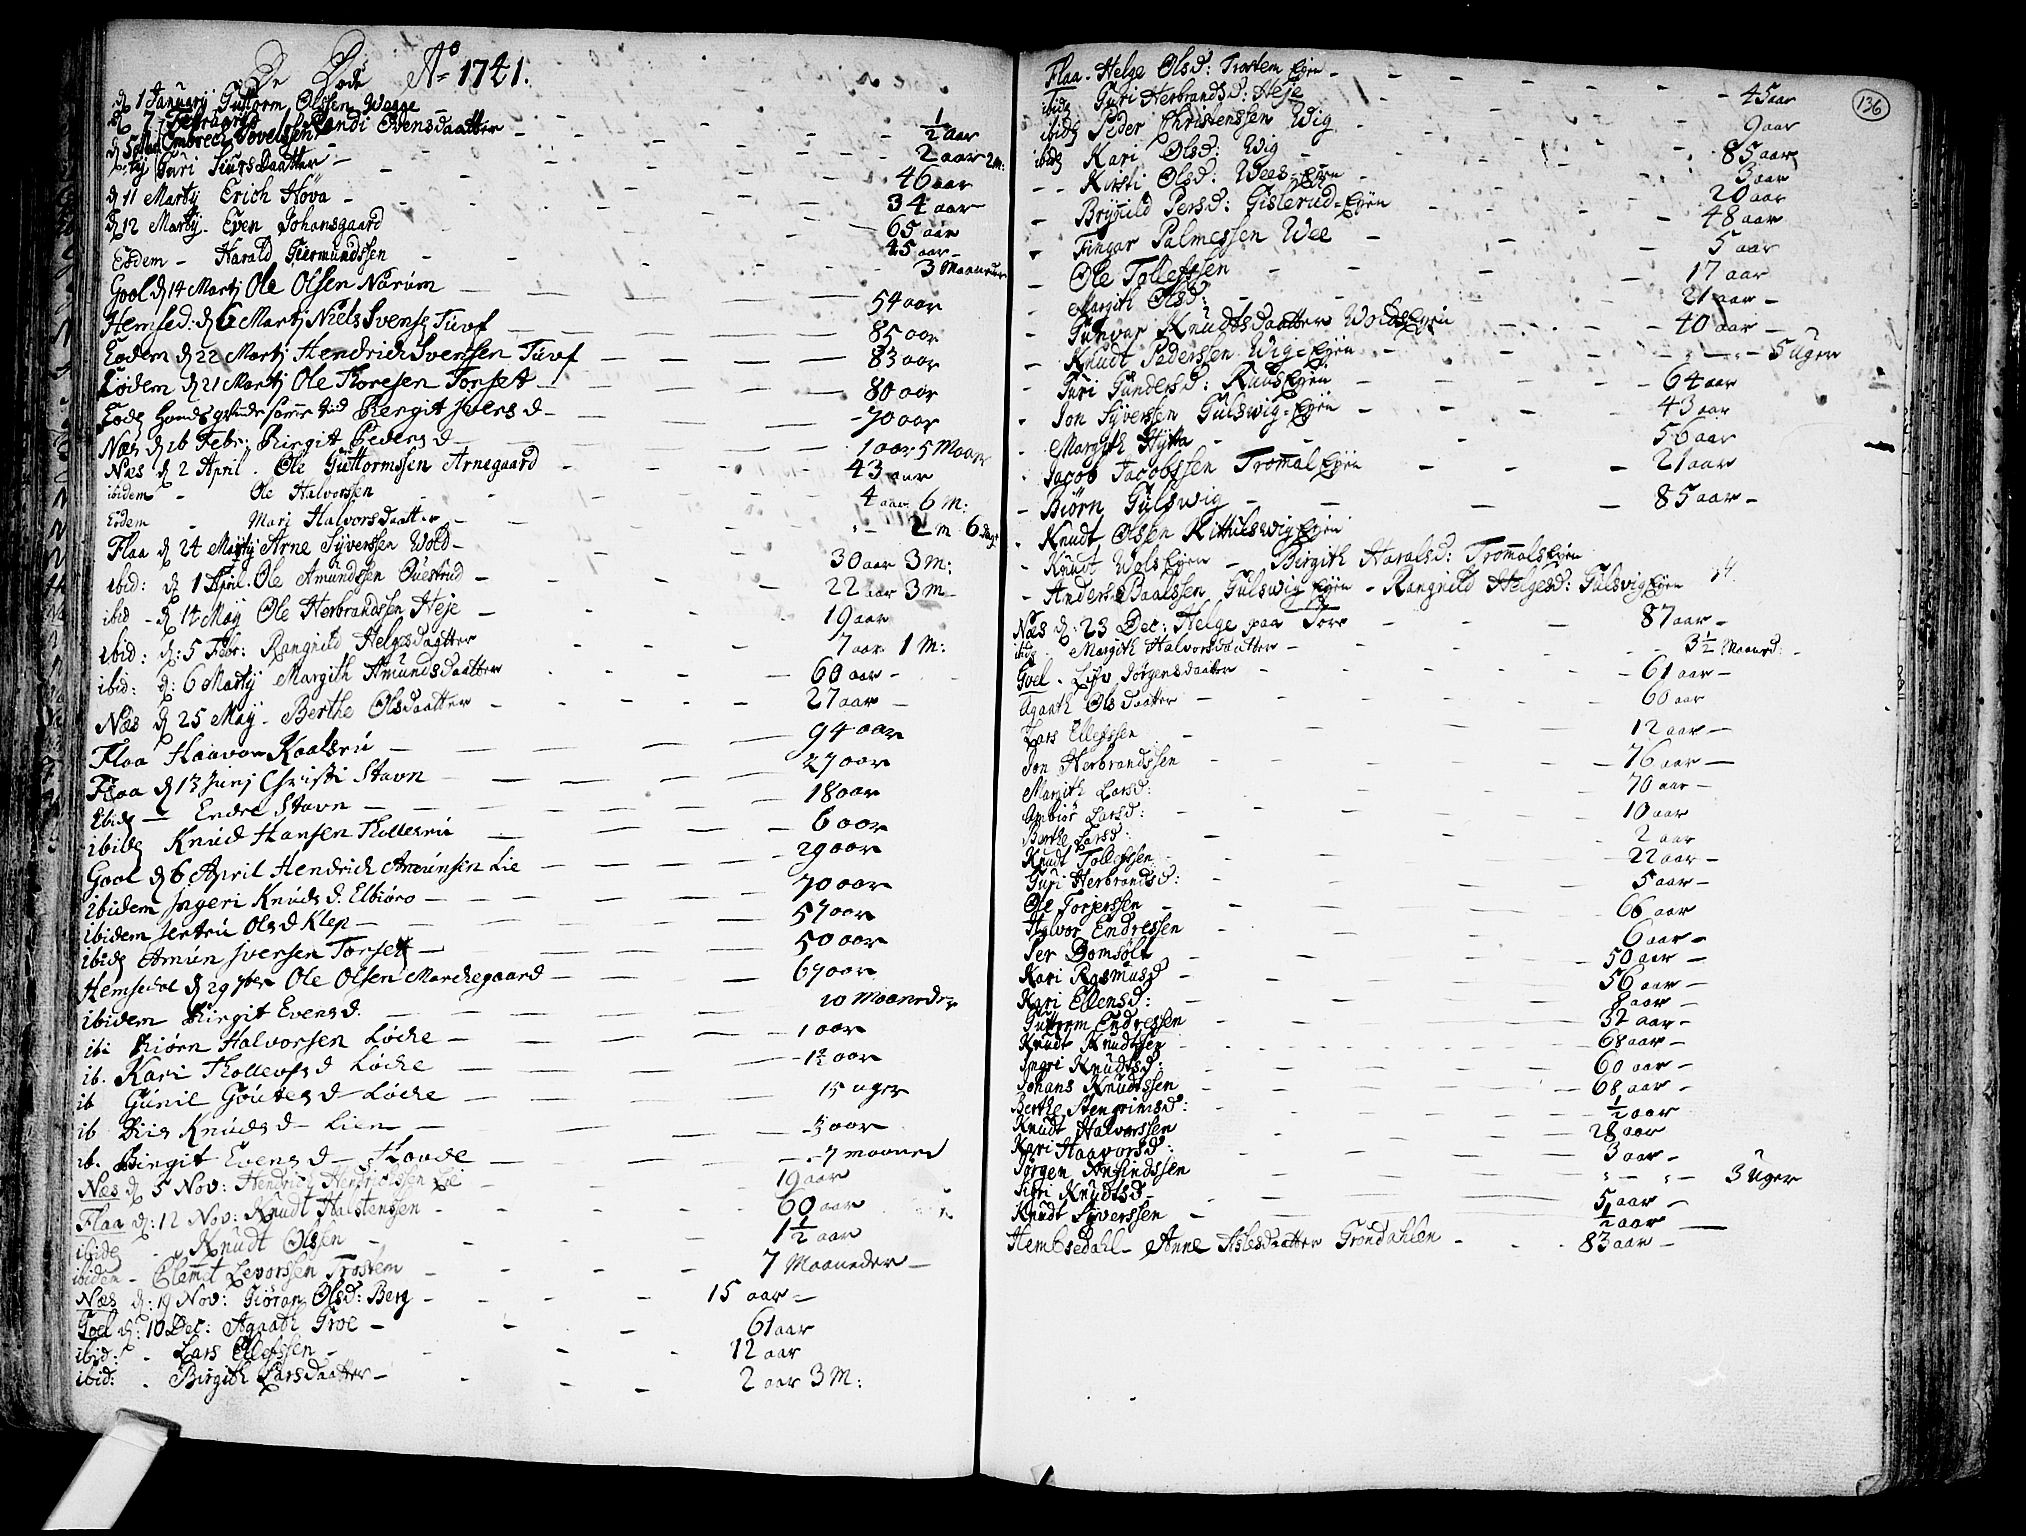 De Døde Aº 1741.
d 1 January Guttorm Olssen Waage - ½ aar
d 7 Februarij Randi Evensdaatter - 2 aar 2 m:
d 5 Embrect Tovelssen - 46 aar
Guri Siursdaatter - 34 aar
d 11 Martij Erich Hova - 65 aar
d 12 Martij. Even Johansgaard - 45 aar -
Eodem - Harald Giermundssen - 3 Maaneder
Gool d 14 Martj Ole Olsen Narúm - 54 aar
Hemsed: d 6 Martj Niels Svens Túvf - 85 aar
Eodem d 22 Martj Hendrich Svensen Túvf - 83 aar
Eodem d 21 Martj Ole Thoresen Torset - 80 aar
Birgit Iversd - 70 aar
Næs d 16 Febr: Birgit Pedersd - 1 aar 5 Maan
Næs d 2 April. Ole Guttormssen Arnegaard - 43 aar
ibidem - Ole Halvorssen - 4 aar 6 M:
Eodem - Mari Halvorsdaatter - 2 m 6 dage
Flaa d 24 Martij Arne Syverssen Wold - 30 aar 3 M:
ibid: d 1 April. Ole Amundssen Ouestrud - 22 aar 3 M -
ibid - d 14 May Ole Herbrandssen Heje - 19 aar
ibid: d: 5 Febr: Rangnild Helgesdaatter - 7 aar 1 M:
ibid: d: 6 Martij Margith Amundsdaatter - 60 aar -
Næs d 25 May - Berthe Olsdaatter - 27 aar -
Flaa Haavor Kaalsrú - 94 aar
Flaa d 13 Junj Christi Stavn - 27 aar
Ibid - Endre Stavn - 18 aar
ibid Knúd Hansen Thollesrú - 6 aar
Gool d 6 April Hendrich Amúnsen Lie - 29 aar
ibidem Ingeri Knúdsd. Elbiøro - 70 aar
ibidem Jertrú Olsd Klep - 57 aar
ibid Amún Iversen Torset - 50 aar
Hemsedal d 29 7ber Ole Olsen Marckegaard - 67 aar
ibidem Birgit Evensd. - 10 Maaneder
ib: Biørn Halvorsen Løcke - 1 aar
ib. Kari Thollevsd Løcke - 1½ aar
ib Gúnil Goutesd - Løcke - 15 uger
ib Knúdsd - Lien - 3 aar
ib. Birgit Evensd - - 7 maaned
Næs d 5 Nov: Hendrich Hendrichssen Lie - 19 aar
Flaa d: 12 Nov: Knudt Halstenssen - 60 aar
ibid - Knudt Olssen - 1½ aar
ibidem - Clemet Levorssen Trostem - 7 Maaneder -
Næs d: 19 Nov: Giøran Olsd: Berg - 15 aar -
Goel d: 10 Dec: Agaath Groe - 61 aar
ibid: - Lars Ellefssen - 12 aar
ibid: - Birgith Larsdaatter - 2 aar 3 M:
136
Flaa - Helge Olsd: Trostem Ejen - 45 aar
ibid Guri Herbrandsd: Heje - 9 aar
ibid Peder Christenssen Wig - 85 aar
ibid Kari Olsd: Wig - 3 aar
- - Kirsti Olsd: Wees-Ejen - 20 aar
- Brynild Persd: Gislerud-Ejen - 48 aar
- Fingar Palmessen Wee - 5 aar
- Ole Tollefssen - 17 aar
- Margith Olsd: - 21 aar -
- Gunvor Knudtsdaatter Wolds Ejen - 40 aar -
- Knudt Pederssen Wig-Ejen - 5 Uger
- Guri Gundersd: Ruus Ejen - 64 aar
- Jon Syverssen Gulswig-Ejen - 43 aar
- Margith Hytta - 56 aar
- Jacob Jacobssen Tromal Ejen - 21 aar
- Biørn Gulswig - 85 aar -
- Knudt Olssen Kittulswig Ejen
- Knudt Wols Ejen - Birgith Haralsd: Tromals Ejen
- Anders Paalssen Gulswig Ejen - Rangnild Helgesd: Gulsvig Ejen
Næs d: 23 Dec: Helge paa Torv - 87 aar -
ibid - Margith Halvorsdaatter - 3½ Maaned: -
Goel - Lijv Jørgensdaatter - 61 aar -
Agaath Olsdaatter - 60 aar
Lars Ellefssen - 12 aar -
Jon Herbrandssen - 76 aar -
Margith Larsd: - 70 aar -
Ambiør Larsd: - 10 aar
Berthe Larsd: - 2 aar
Knudt Tollefssen - 22 aar -
Guri Herbrandsd: - 5 aar -
Ole Torjerssen - 66 aar
Halvor Endressen - 6 aar -
Per Domsølt - 50 aar -
Kari Rasmusd - 56 aar -
Kari Ellensd: - 8 aar -
Guttorm Endressen - 32 aar -
Knudt Knudtssen - 68 aar -
Ingri Knudtsd: - 60 aar -
Johans Knudtssen - 68 aar -
Berthe Stengrimsd: - ½ aar
Knudt Halvorssen - 28 aar
Kari Haavorsd: - 3 aar -
Jørgen Amundssen - 3 Uger
Sibri Knudtsd - 5 aar -
Knudt Syverssen - ½ aar -
Hembsedahl - Anne Aslesdaatter Grøndahlen - 83 aar -